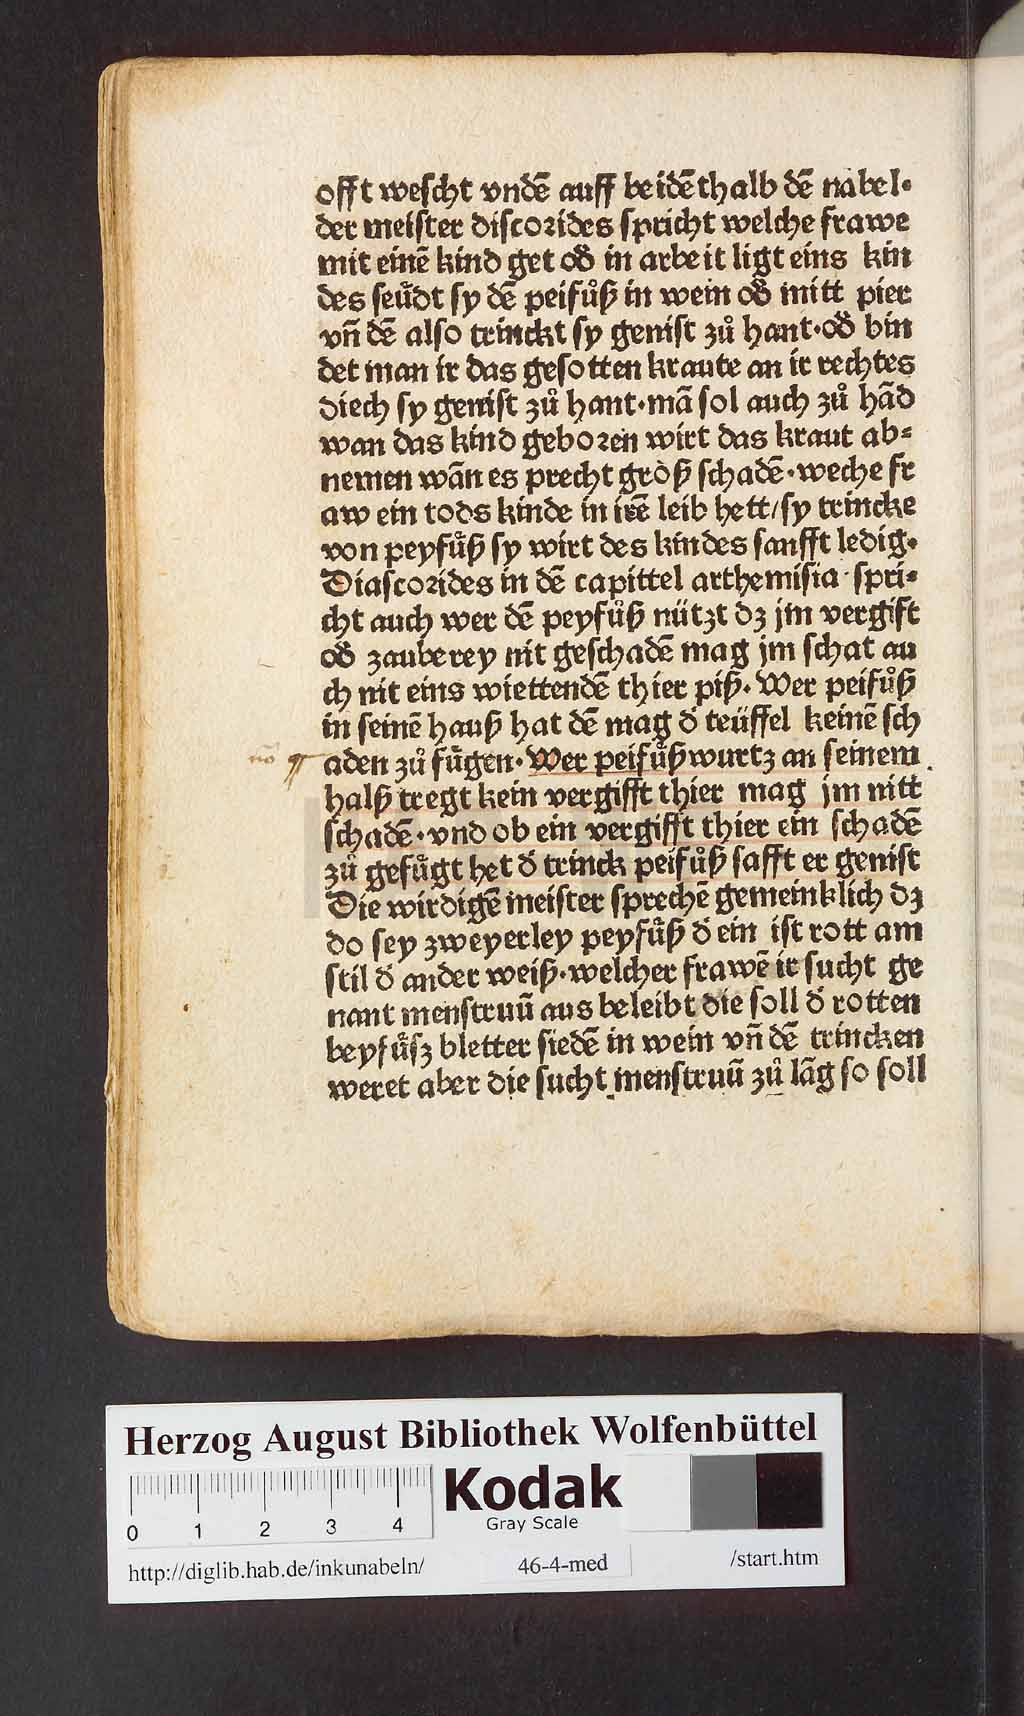 offt wescht vndē auff beidēthalb dē nabel·
der meister discorides spricht welche frawe
mit einē kind get od̄ in arbeit ligt eins kin
des seu̇dt sy dē peifůß in wein od̄ mitt pier
vn̄ dē also trinckt sy genist zů hant·od̄ bin
det man ir das gesotten kraute an ir rechtes
diech sy genist zů hant·mā sol auch zů hād
wan das kind geboren wirt das kraut ab⸗
nemen wān es precht größ schadē·weche fr
aw ein tods kinde in irē leib hett/sy trincke
von peyfůß sy wirt des kindes sanfft ledig·
Diascorides in dē capittel arthemisia·spri⸗
cht auch wer dē peyfůß nützt dz jm vergift
od̄ zauberey nit geschadē mag jm schat au
ch nit eins wiettendē thier piß·Wer peifůß
in seinē hauß hat dē mag d̄ teüffel keinē sch
aden zů fu̇gen·Wer peifůßwurtz an seinem
halß tregt kein vergifft thier mag jm nitt
schadē·vnd ob ein vergifft thier ein schadē
zů gefu̇gt het d̄ trinck peifůß safft er genist
Die wirdigē meister sprechē gemeinklich dz
do sey zweyerley peyfůß d̄ ein ist rott am
stil d̄ ander weiß·welcher frawē ir sucht ge
nant menstruū aus beleibt die soll d̄ rotten
beyfůsz bletter siedē in wein vn̄ dē trincken
weret aber die sucht menstruū zů lāg so soll
nō
Herzog August Bibliothek Wolfenbüttel
0 1 2 3 4
Kodak
Gray Scale
http://diglib.hab.de/inkunabeln/ 46-4-med /start.htm